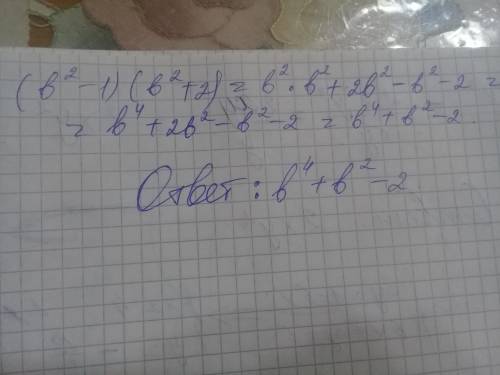 (b²-1)(b²+2) = b²·b²+2b²-b²-2 =
= b⁴+2b²-b²-2 = b⁴+b²-2.
Ответ: b⁴+b²-2